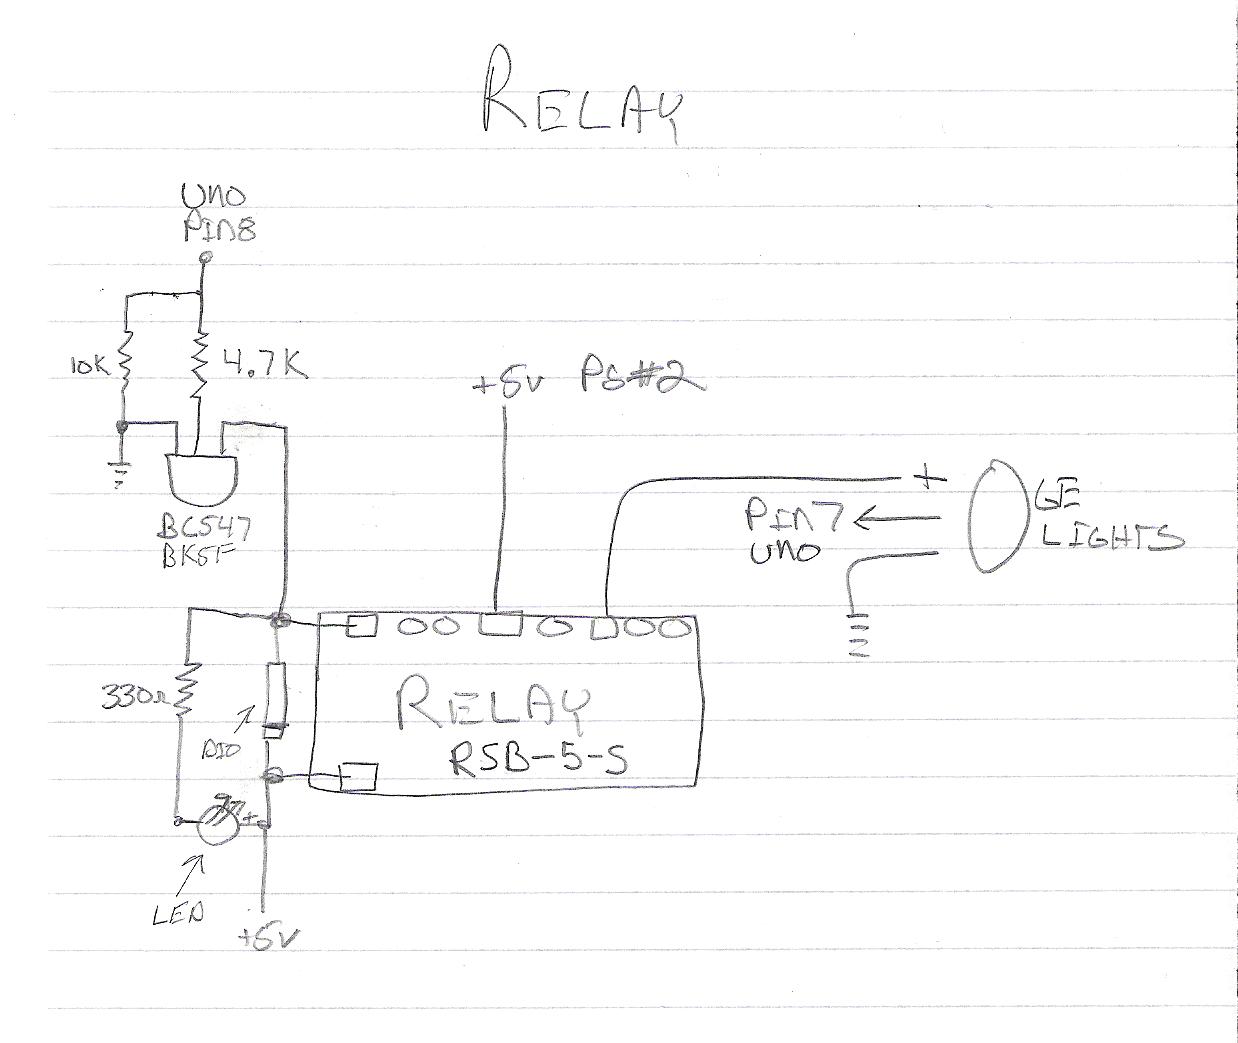 RELAY
UNO
PIN8
10K
4.7K
+5V PS#2
+
GE
LIGHTS
PIN7
UNO
BC547
BK5F
330Ω
DIO
RELAY
RSB-5-S
+
LED
+5V